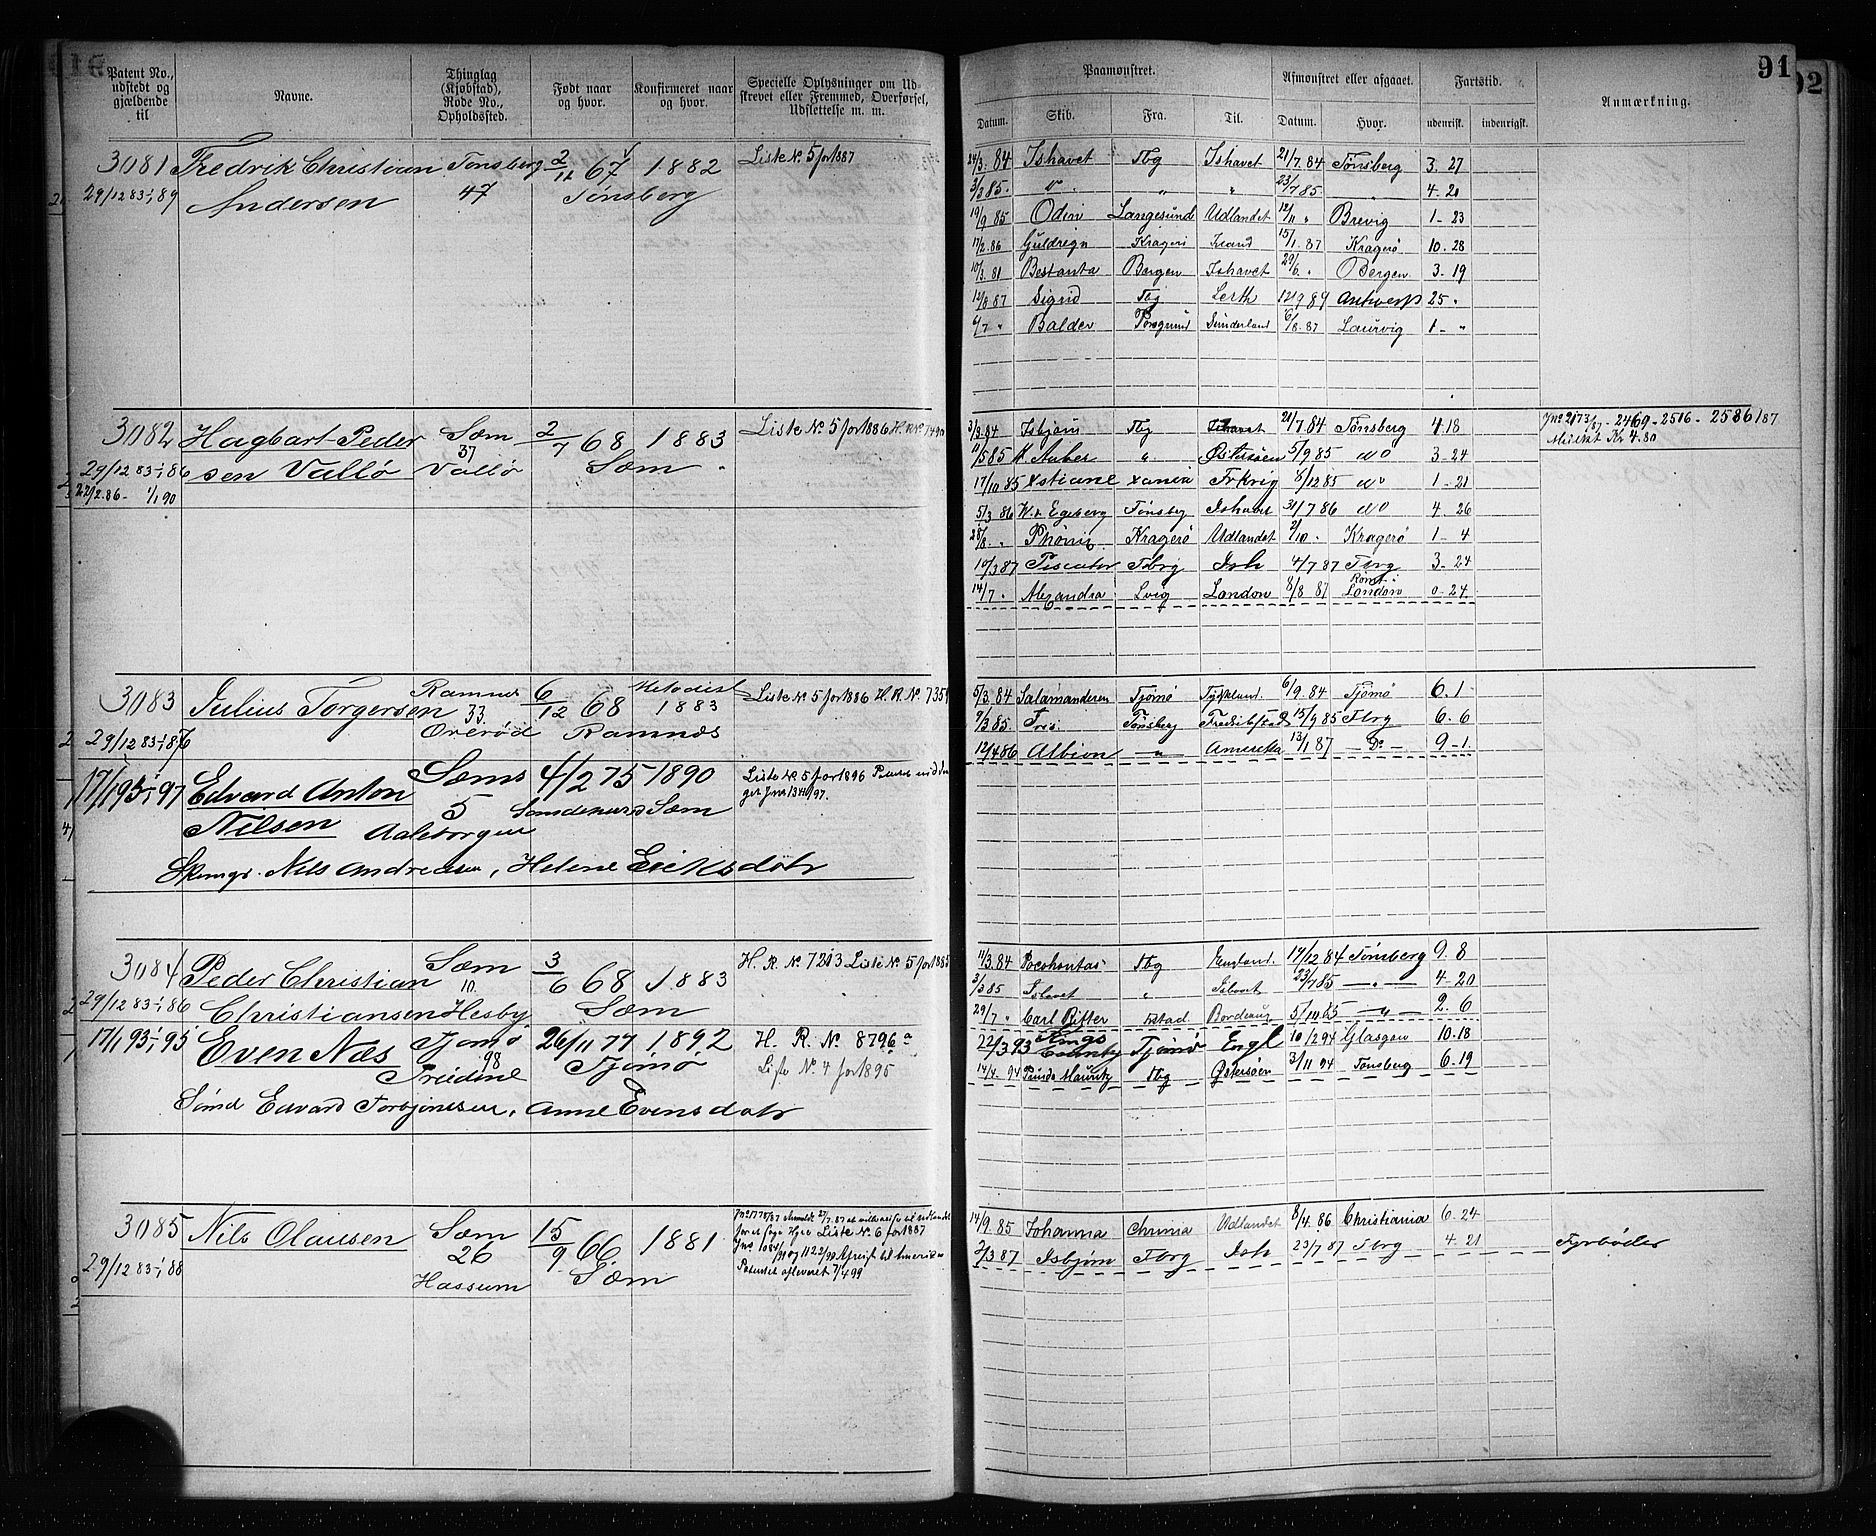 91
92
Patent No., udstedt og gjældende til
Navne.
Thinglag (Kjøbstad), Rode No., Opholdssted.
Født naar og hvor.
Konfirmeret naar og hvor.
Specielle Oplysninger om Udskrevet eller Fremmed, Overførsel, Udslettelse m. m.
Paamønstret.
Afmønstret eller afgaaet.
Fartstid.
Anmærkning.
Datum. Skib. Fra. Til. Datum. Hvor. udenrigsk. indenrigsk.
3081 Fredrik Christian Tønsberg 2/12 67 1882 Liste No. 5 for 1887
29/12 83-1/1 89 Andersen 47 Tønsberg
24/3 84 Ishavet Tbg Ishavet 21/7 84 Tønsberg 3. 27
3/3 85. do . „ „ 23/7 85 „ 4. 20
19/9 85 Odin Langesund Udlandet 12/11 „ Brevig 1- 23
17/2 86 Guldregn Kragerö 15/1. 87 Kragerø 10. 28
10/3. 81 Bestanta Bergen Ishavet 29/6. „ Bergen 3- 19
12/8 87 Sigrid Tbg Leith 12/9 89 Antwerp 25 „
6/7 „ Balder Porsgrund Sunderland 6/8. 87 Laurvig 1- „
3082 Hagbart Peder Sæm 2/7 68 1883 Liste No. 5 for 1886 H. R. No. 7490
29/12 83-1/1 86 sen Vallø 37 Vallø Sæm
22/2. 86- 1/1 90
3/3. 84 Isbjørn Tbg Ishavet 21/7. 84 Tønsberg 4. 18
Jno 2173/87 - 2469 - 2516 - 2586/87
Mulkt Kr 4.80
10/5 85 K Auber „ Østersøen 5/9 85 do 3- 24
17/10 85 Xstiane Xania Frkrig 8/12 85 do 1 - 21
5/3 86 W. Egeberg Tønsbg Ishavet 31/7 86 do 4. 26
28/8. „ Phønix Kragerø Udlandet 2/10 . Kragerø 1- 4
10/3 87 Piscator Tbrg Ish 4/7 87 Tbrg 3- 24
14/7 . Alexandra Lvig London 8/8 87 Rømt London 0- 24
3083 Julius Torgersen Ramnes 6/12 68 Metodist 1883 Liste No. 5 for 1886 H. R. No. 7359
29/12 83-1/1 86 33. Overød Ramnæs
5/3. 84 Salamanderen Tjømø Tydskland. 6/9. 84 Tjømø 6. 1
9/3 85. Fris. Tønsberg Fredrikst. 15/9 85 Tbrg 6. 6
12/4 86 Albion „ Amerika 13/1 87 - Do - 9- 1.
17/1 93-1/1 97 Edvard Anton Sæms 4/2 75 1890 Liste No. 5 for 1896
Nilsen 5 Aaletorgen Sandeherred Sæm
Skomgr. Nils Andreasen, Helene Eriksdatr
3084 Peder Christian Sæm 3/6 68 1883 H. R. No. 7213 Liste No. 5 for 1885
29/12 83-1/1 86 Christiansen 10. Hesby Sæm
11/3. 84 Pocohontas Tbg England. 17/12 84 Tønsberg 9. 8
3/3 85 Ishavet „ Ishavet 23/7 85 - „ - 4- 20
29/7 „ Carl Rifter Fstad Bordeaux 5/10 85 - „ - 2. 6
17/1 93-1/1 95 Even Næs Tjømø 26/11 77 1892 H. R. No. 8796a
98 Tjømø Liste No. 4 for 1895
22/3 93 Kings County Tjømø Engl 10/2 94 Glasgow 10. 18
14/4. 94 Prinds Mauritz Tbg Østersøen 3/11 94 Tønsberg 6. 19
Sømd Edvard Torbjørnsen, Anne Evensdatr
3085 Nils Olausen Sæm 15/9 66 1881
29/12 83-1/1 88 26 Hassum Sæm
Liste No. 6 for 1887
Jno 1084/91 og 1122/90 Afreist til Amerika
Patentet afleveret 7/4 99
14/9. 85 Johanna Chrania Udlandet 8/4. 86 Christiania 6. 24
2/3 87 Isbjørn Tbrg Ish 23/7 87 Tbrg 4. 21 Fyrbøder